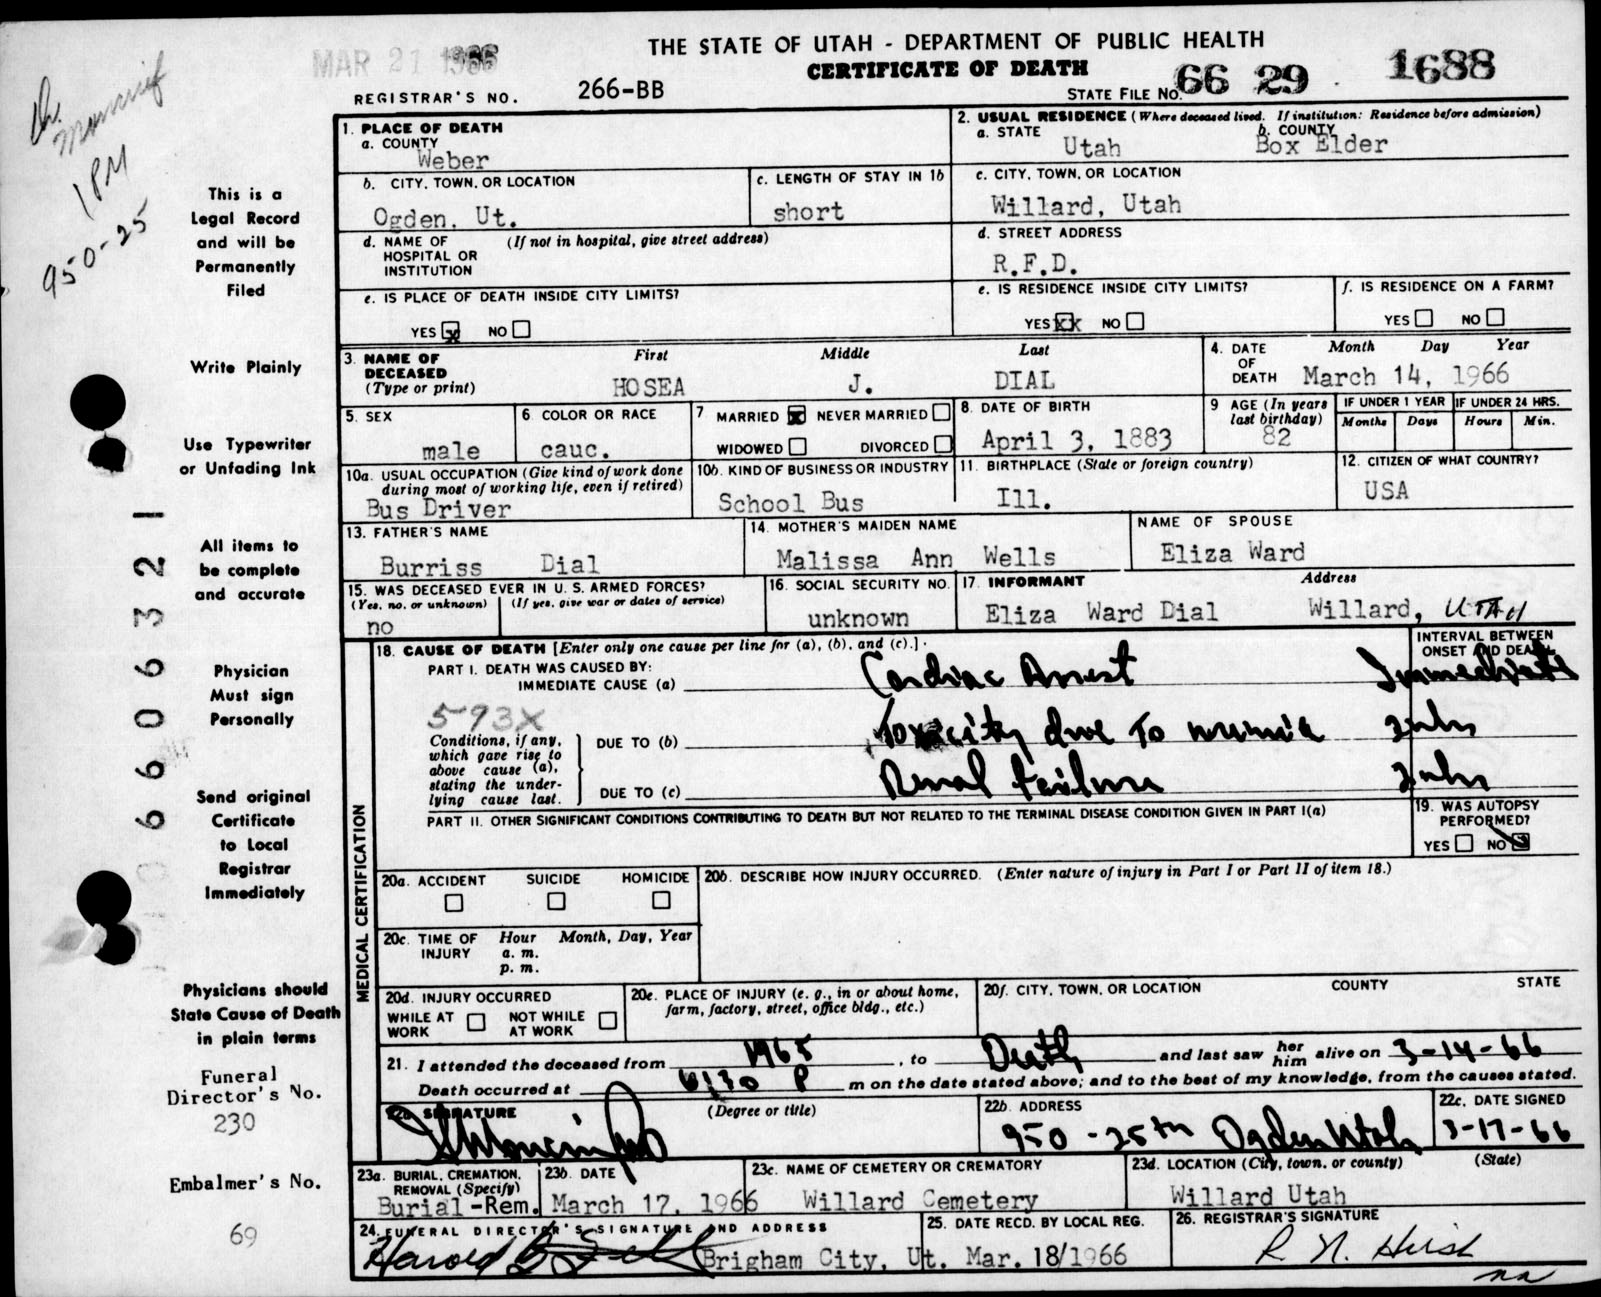 THE STATE OF UTAH - DEPARTMENT OF PUBLIC HEALTH
MAR 21 1966
CERTIFICATE OF DEATH
REGISTRAR'S NO. 266-BB
STATE FILE NO. 66 29 1688
Dr.
1 PM
950-25
This is a
Legal Record
and will be
Permanently
Filed
Write Plainly
Use Typewriter
or Unfading Ink
All items to
be complete
and accurate
Physician
Must sign
Personally
Send original
Certificate
to Local
Registrar
Immediately
Physicians should
State Cause of Death
in plain terms
Funeral
Director's No.
230
Embalmer's No.
69
66 0 6 3 2 1
1. PLACE OF DEATH
a. COUNTY
Weber
2. USUAL RESIDENCE (Where deceased lived. If institution: Residence before admission)
a. STATE b. COUNTY
Utah Box Elder
b. CITY, TOWN, OR LOCATION
Ogden, Ut.
c. LENGTH OF STAY IN 1b
short
c. CITY, TOWN, OR LOCATION
Willard, Utah
d. NAME OF (If not in hospital, give street address)
HOSPITAL OR
INSTITUTION
d. STREET ADDRESS
R.F.D.
e. IS PLACE OF DEATH INSIDE CITY LIMITS?
YES x NO
e. IS RESIDENCE INSIDE CITY LIMITS?
YES xx NO
f. IS RESIDENCE ON A FARM?
YES NO
3. NAME OF First Middle Last
DECEASED
(Type or print) HOSEA J. DIAL
4. DATE Month Day Year
OF
DEATH March 14, 1966
5. SEX
male
6 COLOR OR RACE
cauc.
7 MARRIED x NEVER MARRIED
WIDOWED DIVORCED
8. DATE OF BIRTH
April 3, 1883
9 AGE (In years
last birthday)
82
IF UNDER 1 YEAR IF UNDER 24 HRS.
Months Days Hours Min.
10a. USUAL OCCUPATION (Give kind of work done
during most of working life, even if retired)
Bus Driver
10b. KIND OF BUSINESS OR INDUSTRY
School Bus
11. BIRTHPLACE (State or foreign country)
Ill.
12. CITIZEN OF WHAT COUNTRY?
USA
13. FATHER'S NAME
Burriss Dial
14. MOTHER'S MAIDEN NAME
Malissa Ann Wells
NAME OF SPOUSE
Eliza Ward
15. WAS DECEASED EVER IN U. S. ARMED FORCES?
(Yes, no, or unknown) (If yes, give war or dates of service)
no
16. SOCIAL SECURITY NO.
unknown
17. INFORMANT Address
Eliza Ward Dial Willard, UTAH
MEDICAL CERTIFICATION
18. CAUSE OF DEATH [Enter only one cause per line for (a), (b), and (c).]
INTERVAL BETWEEN
ONSET AND DEATH
PART I. DEATH WAS CAUSED BY:
IMMEDIATE CAUSE (a) Cardiac Arrest Immediate
593X
Conditions, if any,
which gave rise to
above cause (a),
stating the under-
lying cause last.
DUE TO (b) Toxicity due To uremia
DUE TO (c) Renal failure
PART II. OTHER SIGNIFICANT CONDITIONS CONTRIBUTING TO DEATH BUT NOT RELATED TO THE TERMINAL DISEASE CONDITION GIVEN IN PART I(a)
19. WAS AUTOPSY
PERFORMED?
YES NO
20a. ACCIDENT SUICIDE HOMICIDE
20b. DESCRIBE HOW INJURY OCCURRED. (Enter nature of injury in Part I or Part II of item 18.)
20c. TIME OF Hour Month, Day, Year
INJURY a. m.
p. m.
20d. INJURY OCCURRED
WHILE AT NOT WHILE
WORK AT WORK
20e. PLACE OF INJURY (e. g., in or about home,
farm, factory, street, office bldg., etc.)
20f. CITY, TOWN, OR LOCATION COUNTY STATE
21. I attended the deceased from 1965, to Death and last saw her him alive on 3-14-66
Death occurred at 6:30 P m on the date stated above; and to the best of my knowledge, from the causes stated.
22a. SIGNATURE (Degree or title)
22b. ADDRESS
950 - 25th Ogden Utah
22c. DATE SIGNED
3-17-66
23a. BURIAL, CREMATION,
REMOVAL (Specify)
Burial-Rem.
23b. DATE
March 17, 1966
23c. NAME OF CEMETERY OR CREMATORY
Willard Cemetery
23d. LOCATION (City, town, or county) (State)
Willard Utah
24. FUNERAL DIRECTOR'S SIGNATURE AND ADDRESS
Harold B. Brigham City, Ut.
25. DATE RECD. BY LOCAL REG.
Mar. 18/1966
26. REGISTRAR'S SIGNATURE
R N. Hirst